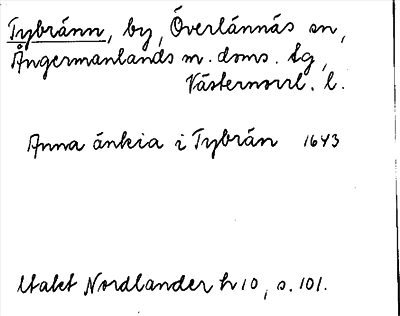 Tybränn, by, Överlännäs sn,
Ångermanlands m. doms. tg,
Västernorrl. l.
Anna änkia i Tybrän 1643
Utakt Nordlander h 10, s. 101.